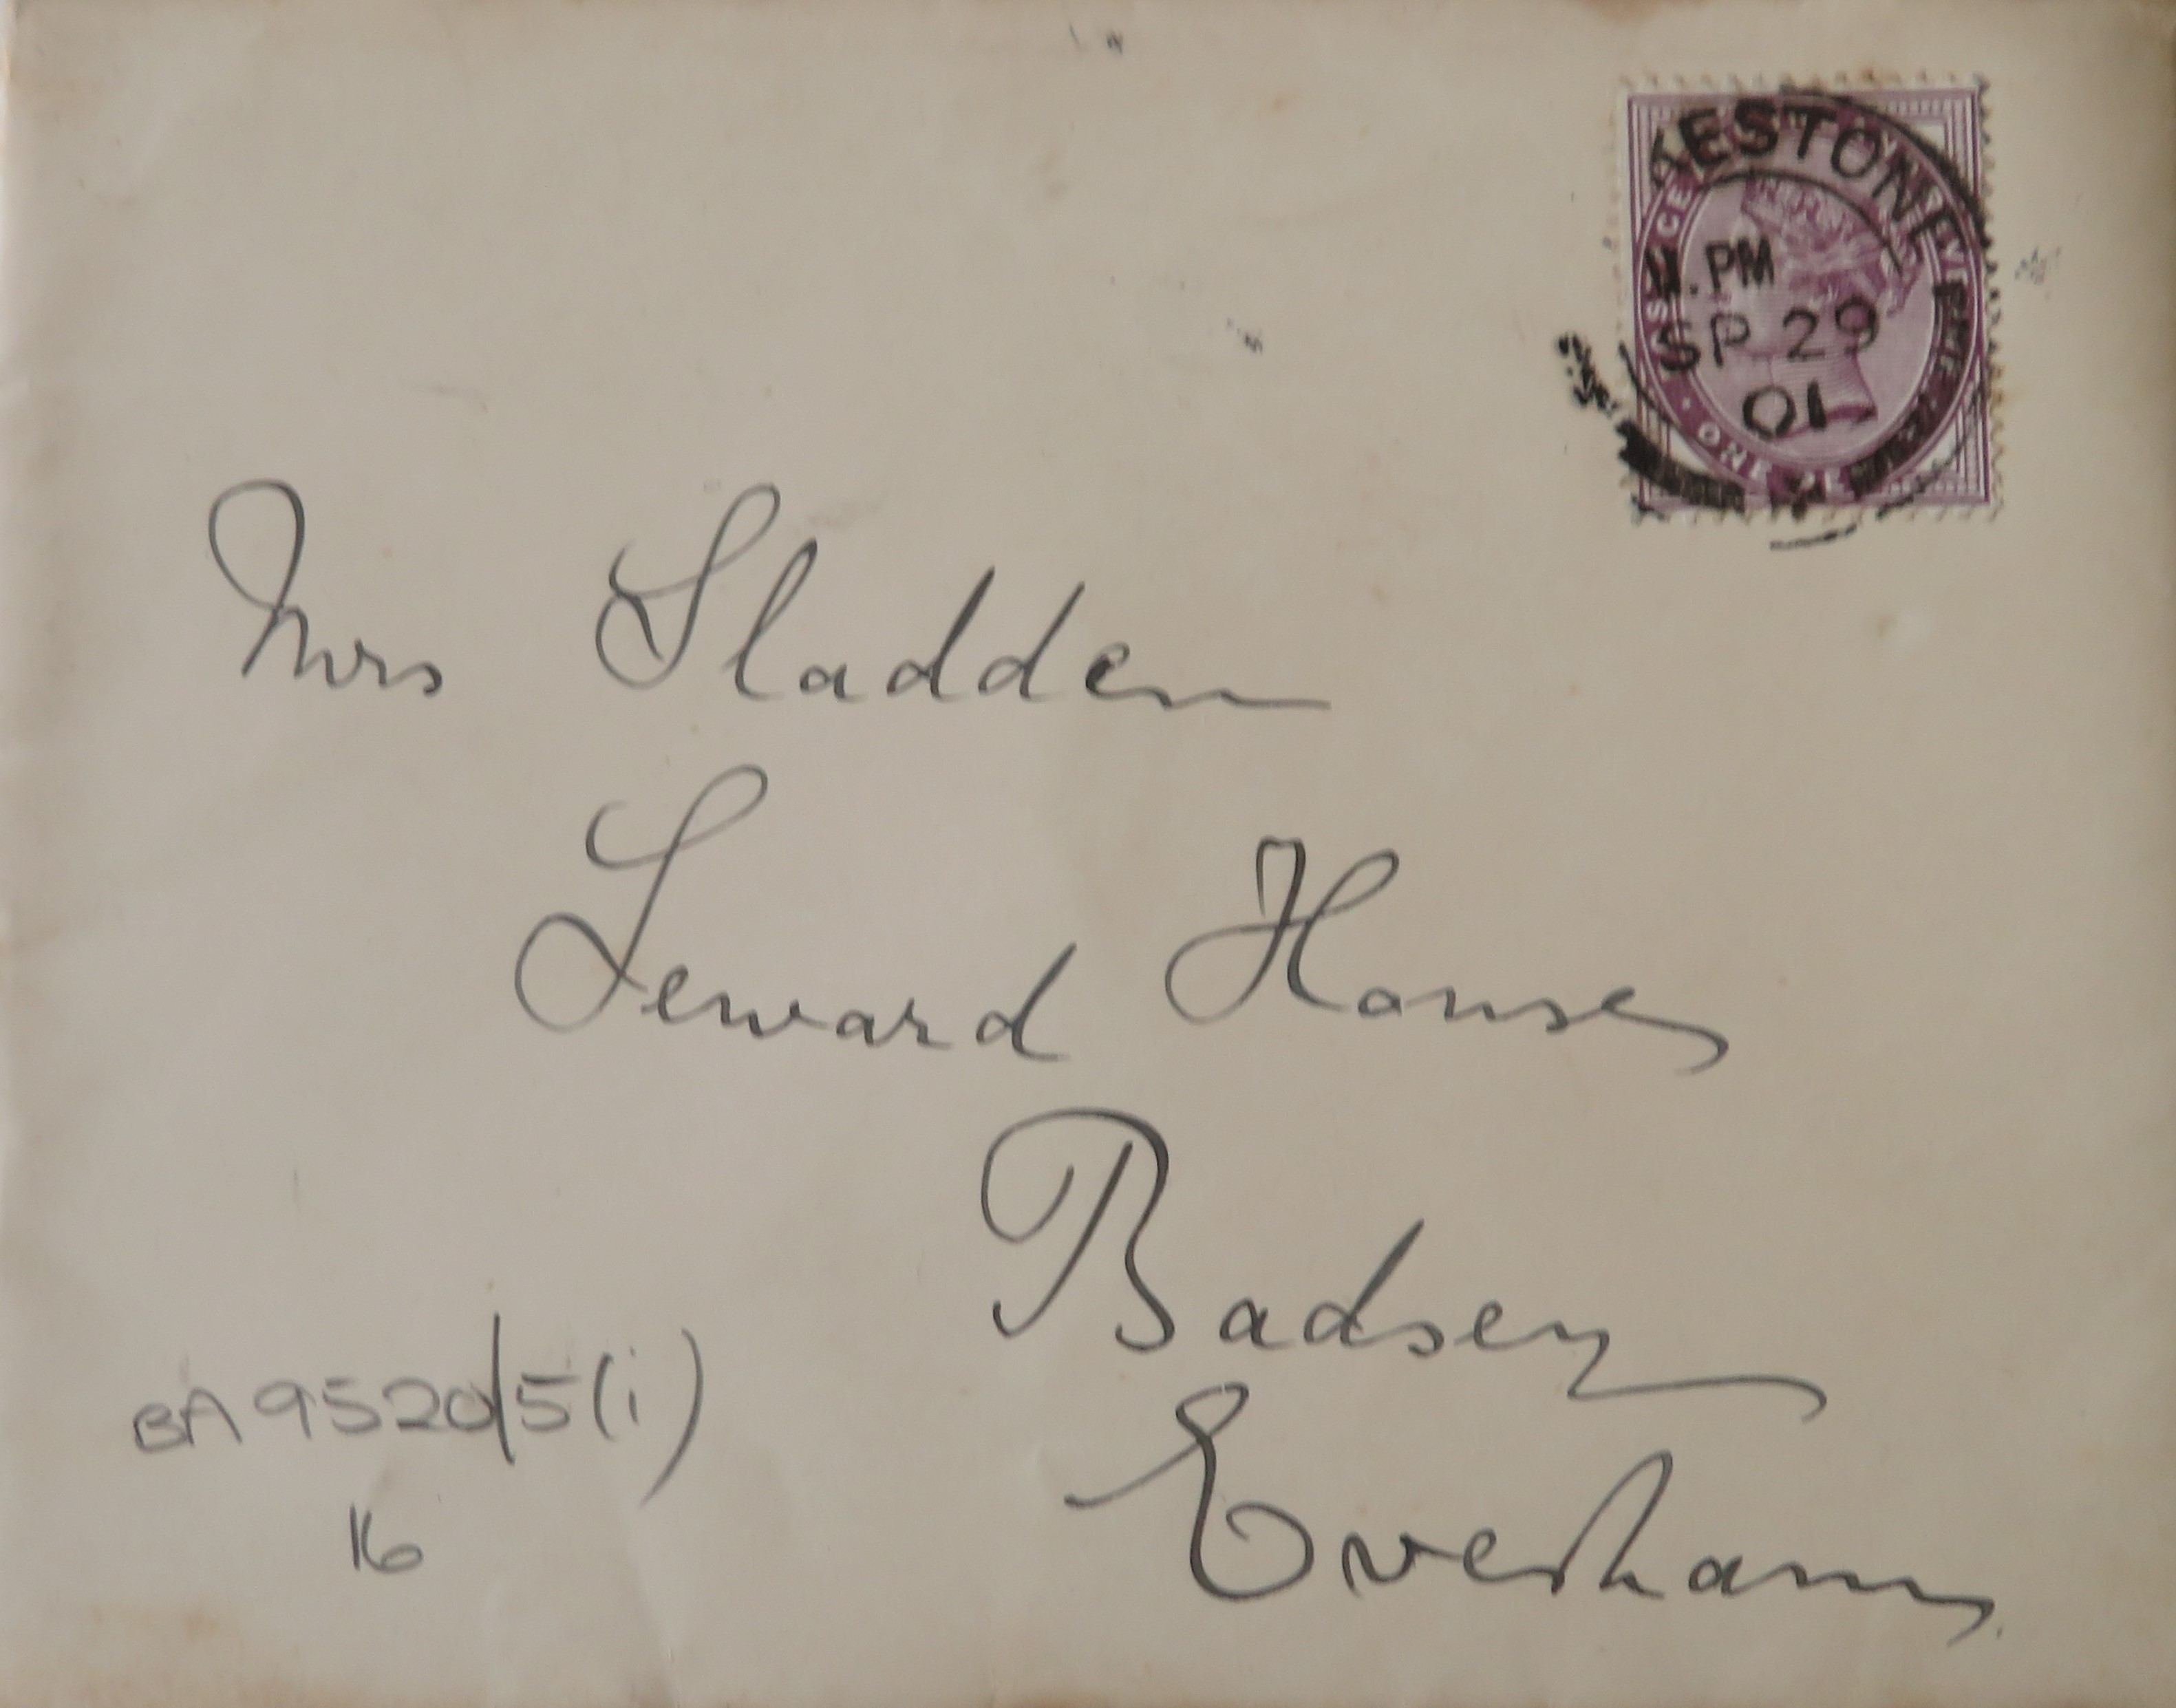 ESTONE
.PM
SP 29
01
ONE PE
Mrs Sladden
Seward House
Badsey
Evesham
BA 9520/5(i)
16